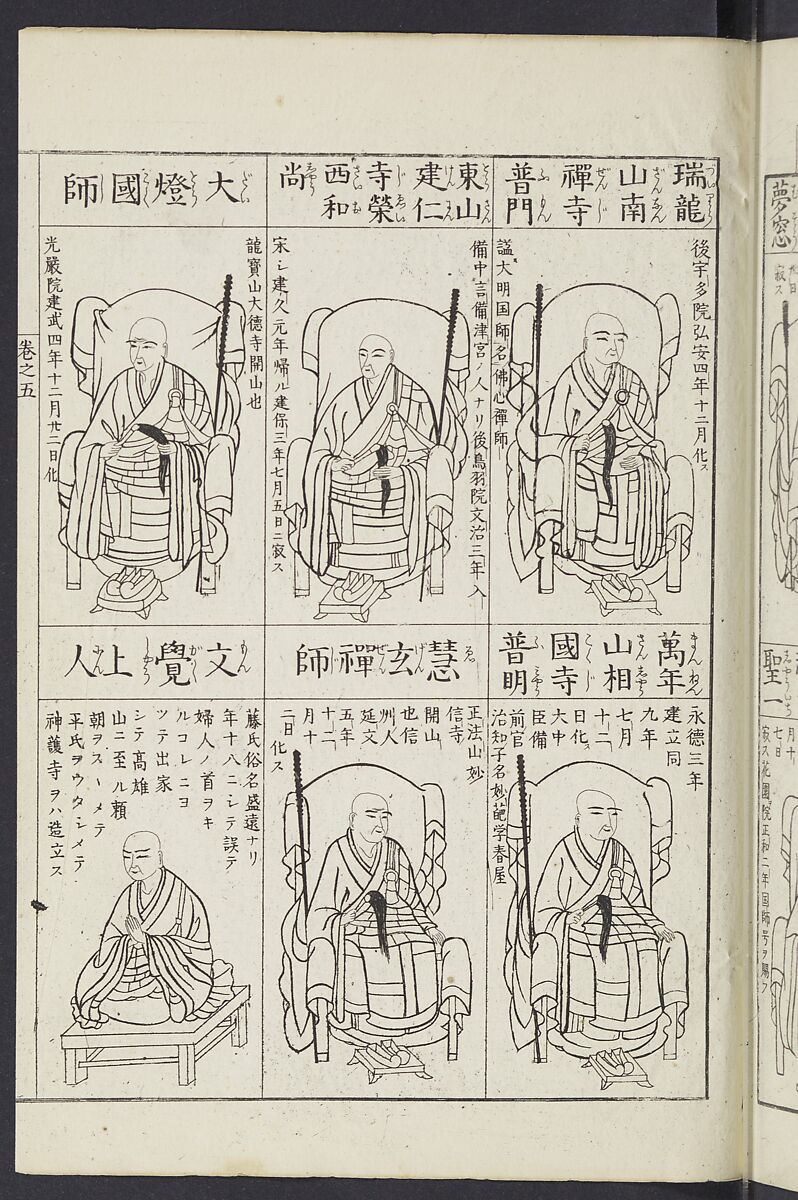 瑞龍
山南
禪寺
普門
後宇多院弘安四年十二月化ス
諡大明国師名佛心禪師
東山
建仁
寺榮
西和
尚
備中言備津宮ノ人ナリ後鳥羽院文治三年入
宋シ建久元年帰ル建保三年七月五日ニ寂ス
大燈國師
龍寳山大德寺開山也
光嚴院建武四年十二月廿二日化
萬年
山相
國寺
普明
永德三年
建立同
九年
七月
十二
日化ス
大中
臣備
前官
治知子名妙葩学春屋
慧玄禪師
正法山妙
信寺
開山
也信
州人
延文
五年
十二
月十
二日化ス
文覺上人
藤氏俗名盛遠ナリ
年十八ニシテ誤テ
婦人ノ首ヲキ
ルコレニヨ
ツテ出家
シテ高雄
山ニ至ル頼
朝ヲスヽメテ
平氏ヲウタシメテ
神護寺ヲハ造立ス
巻之五
夢窓
寂ス
聖一
月十
七日
寂ス花園院正和二年国師号ヲ賜フ